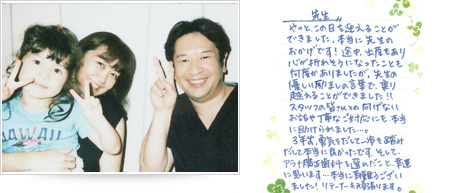 HAWAII
先生
やっと、この日を迎えることが
できました。本当に先生の
おかげです！途中、出産もあり
心が折れそうになったことも
何度かありましたが、先生の
優しい励ましの言葉で、乗り
越えることができました!!
スタッフの皆さんとの何げない
お話や丁寧なご対応にも本当
に助けられました…。
3年前、勇気をだして一歩を踏み
だして本当に良かったです。そして、
矯正歯科を選んだこと、幸運
に思います…本当に有難うござい
ました！リテーナーも頑張ります